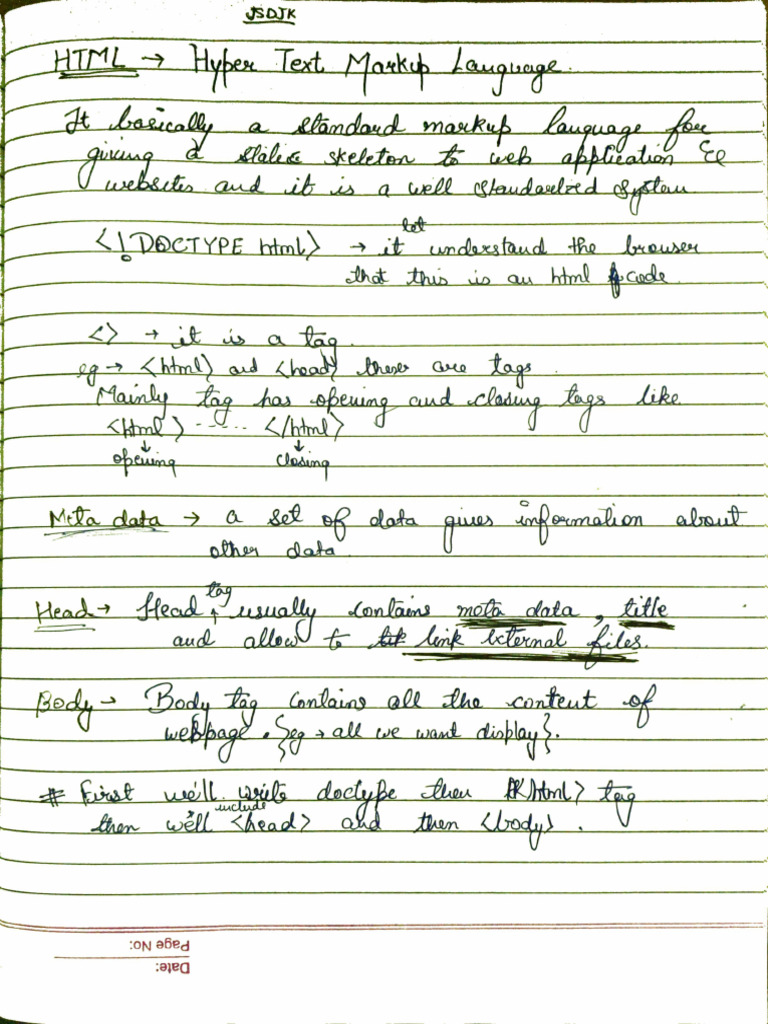 JSDJK
HTML → Hyper Text Markup Language.
It basically a standard markup language for
giving a static skeleton to web application &
websites and it is a well standardized system
<!DOCTYPE html> → it let understand the browser
that this is an html code.
<> → it is a tag.
eg → <html> and <head> these are tags.
Mainly tag has opening and closing tags like
<html> ----- </html>
↓ ↓
opening closing
Meta data → a set of data gives information about
other data.
Head → Head tag usually contains meta data, title
and allow to link external files.
Body → Body tag contains all the content of
webpage. {eg → all we want display}.
# First we'll write doctype then <html> tag
then we'll include <head> and then <body>.
Page No:
Date: